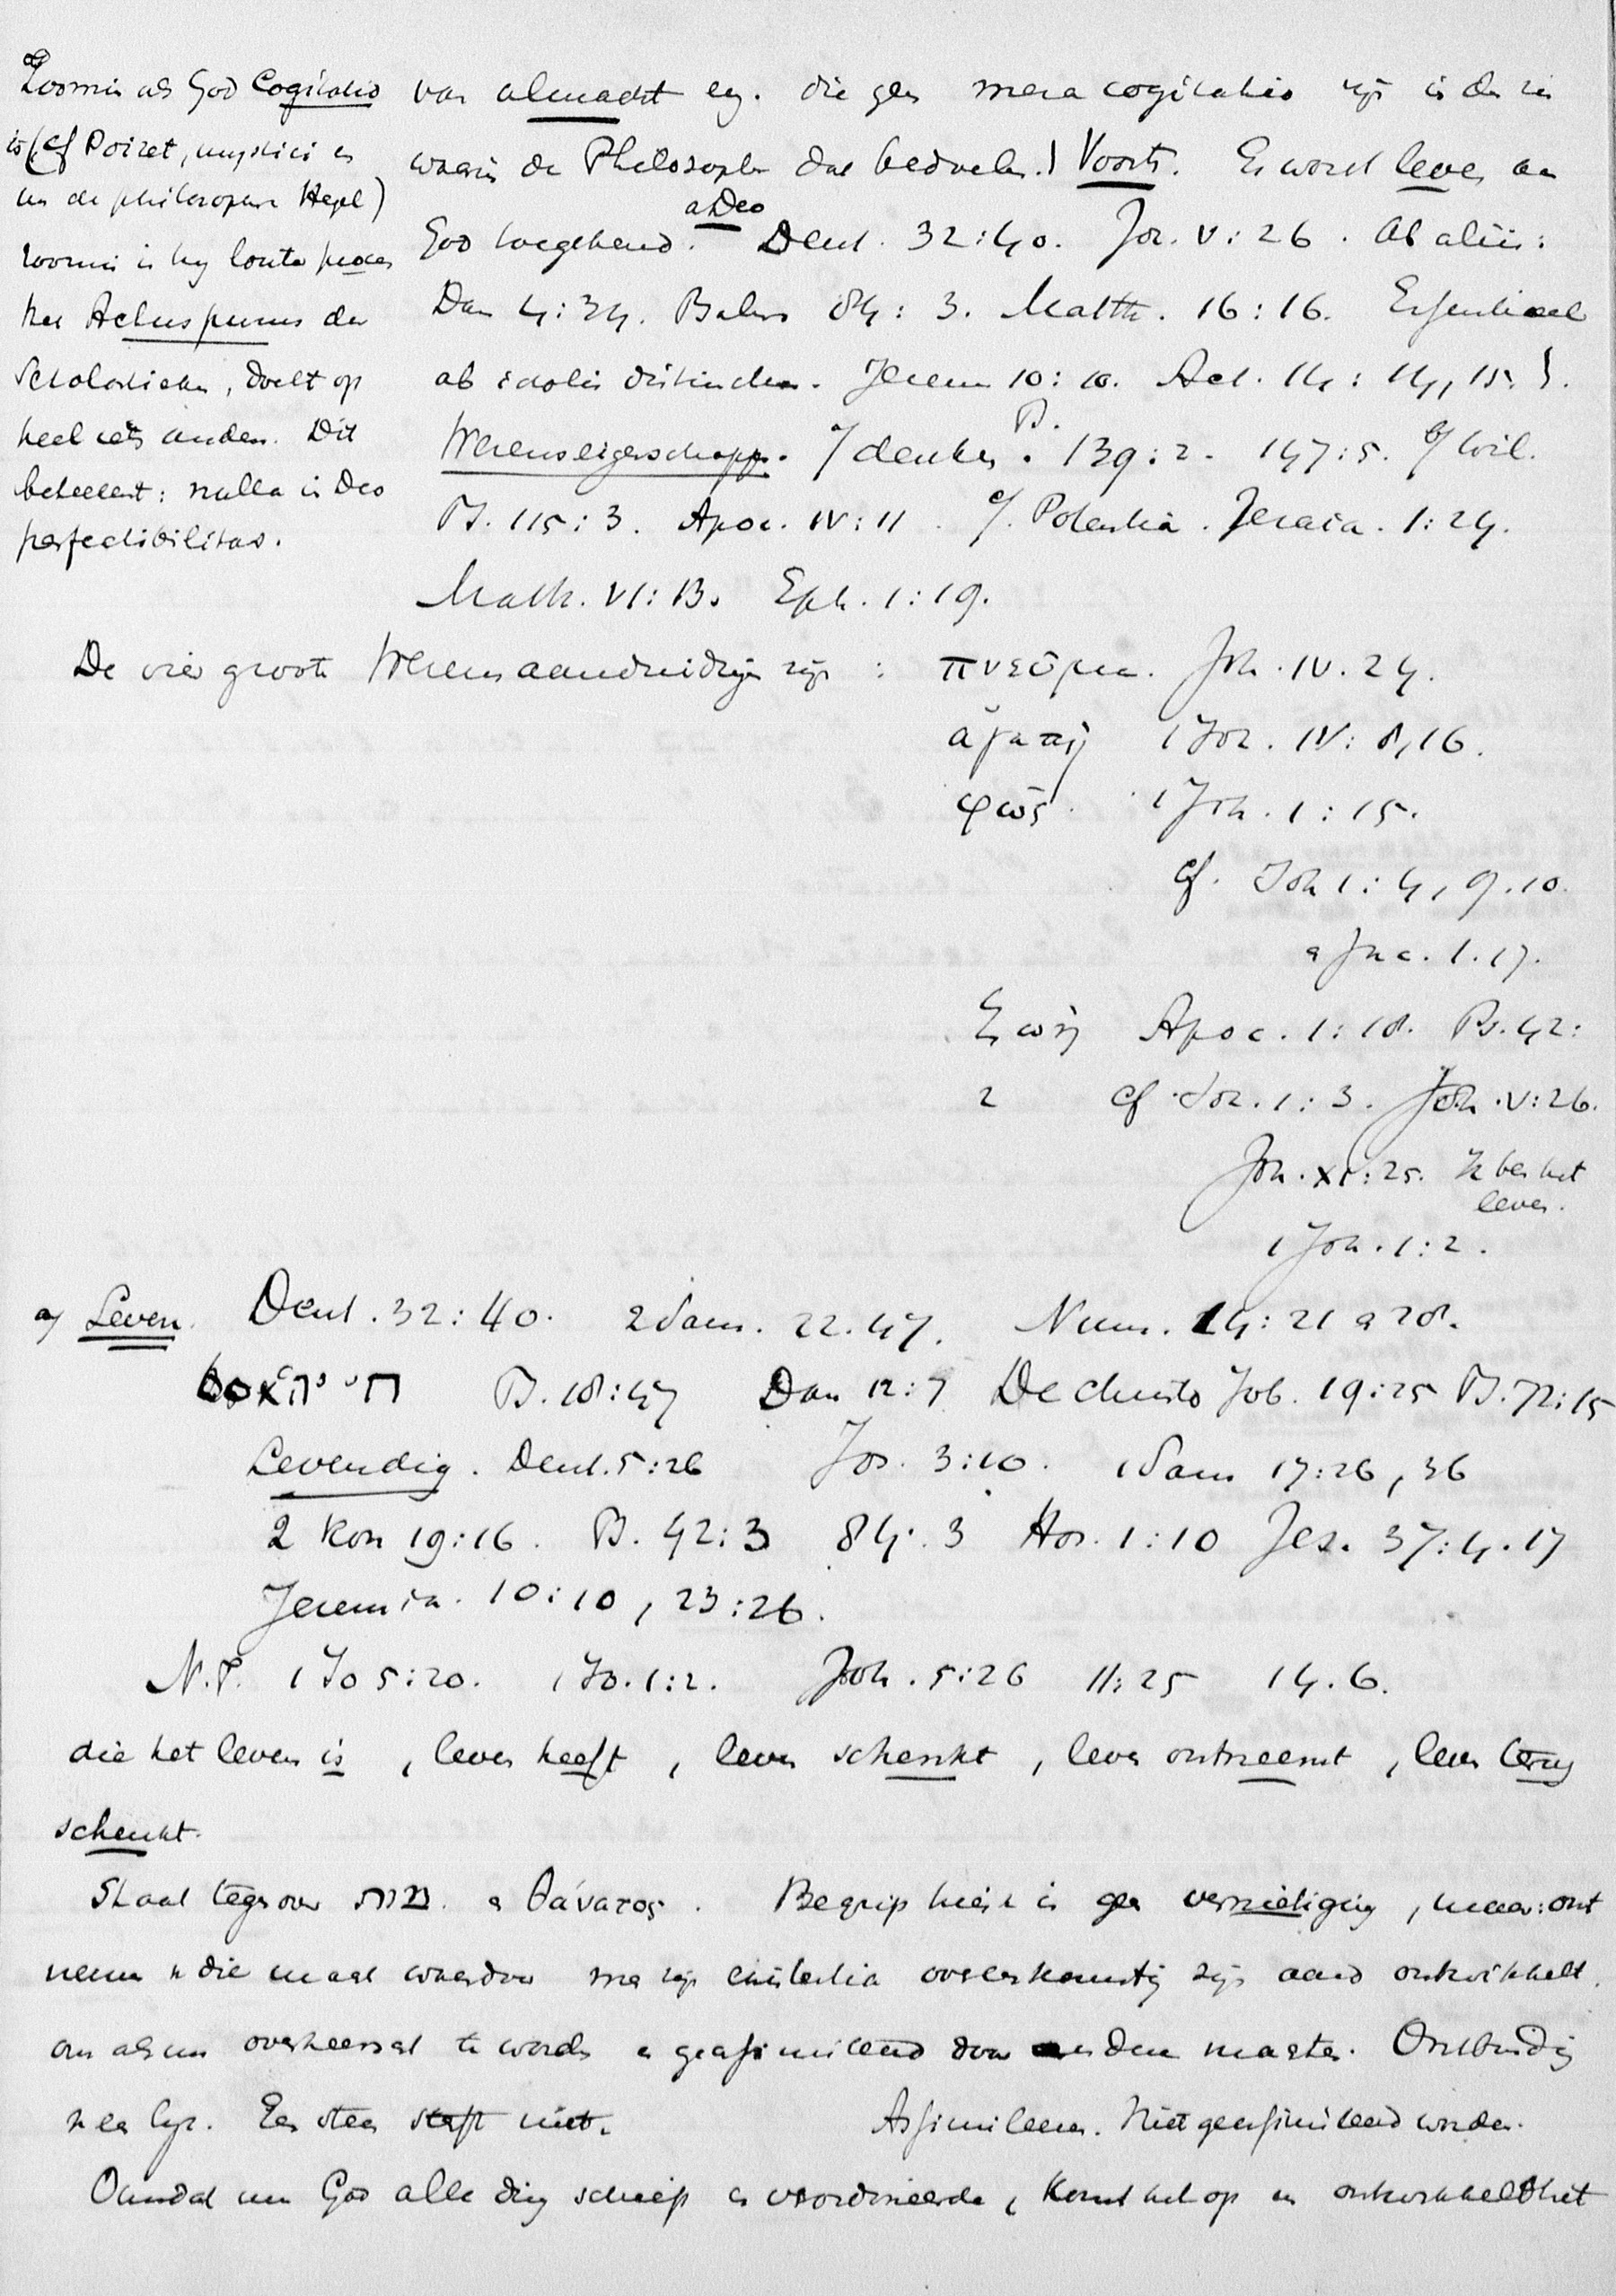 Zoomin als God Cogitatio
is (cf Poiret, mystici en
in de philosophie Hegel)
zoomin is hij louter proces
het Actus purus der
Scholastieken, doelt op
heel iets anders. Dit
beteekent: nulla in Deo
perfectibilitas.
van almacht enz. die geen mera cogitatio zijn in den zin
waarin de Philosophen dat bedoelen.) Voorts. Er wordt leven aan
a Deo
God toegekend. Deut. 32:40. Joz. V:26. Ab aliis:
Dan 4:34. Psalm 84:3. Matth. 16:16. Essentieel
ab idolis distinctum. Jerem 10:10. Act. 14:14, 15.
Wezenseigenschapp. a/ denken. Ps. 139:2. 147:5. b/ Wil.
Ps. 115:3. Apoc. IV:11. c/. Potentia. Jesaia. 1:24.
Matth. VI:13. Eph. 1:19.
De vier groote Wezensaanduidingen zijn: πνεῦμα. Joh. IV. 24.
ἀγαπή 1 Joh. IV: 8, 16.
φῶς. 1 Joh. 1:15.
cf. Joh 1:4, 9. 10.
en Jac. 1. 17.
ζωή Apoc. 1:18. Ps. 42:
2 cf. Joh. 1:3. Joh. V:26.
Joh. XI:25. Ik ben het
leven.
1 Joh. 1:2.
a/ Leven. Deut. 32:40. 2 Sam. 22. 47. Num. 14:21 en 28.
Ps. 18:47 Dan 12:7 De Christo Job. 19:25 Ps. 72:15
Levendig. Deut. 5:26 Jos. 3:10. 1 Sam 17:26, 36
2 Kon 19:16. Ps. 42:3 84:3 Hos. 1:10 Jes. 37:4. 17
Jeremia. 10:10, 23:26.
N.T. 1 Jo 5:20. 1 Jo. 1:2. Joh. 5:26 11:25 14. 6.
die het leven is, leven heeft, leven schenkt, leven ontneemt, leven terug
schenkt.
Staat tegenover מות. en θάνατος. Begrip hier is geen vernietiging, maar: ont
nemen die macht waardoor men zijn existentia overeenkomstig zijn aard ontwikkelt.
om alsnu overheerscht te worden en geassimileerd door andere machten. Ontbinding
v. een lijk. Een steen sterft niet. Assimileeren. Niet geassimileerd worden.
Omdat nu God alle ding schiep en verordineerde, komt het op en ontwikkelt het